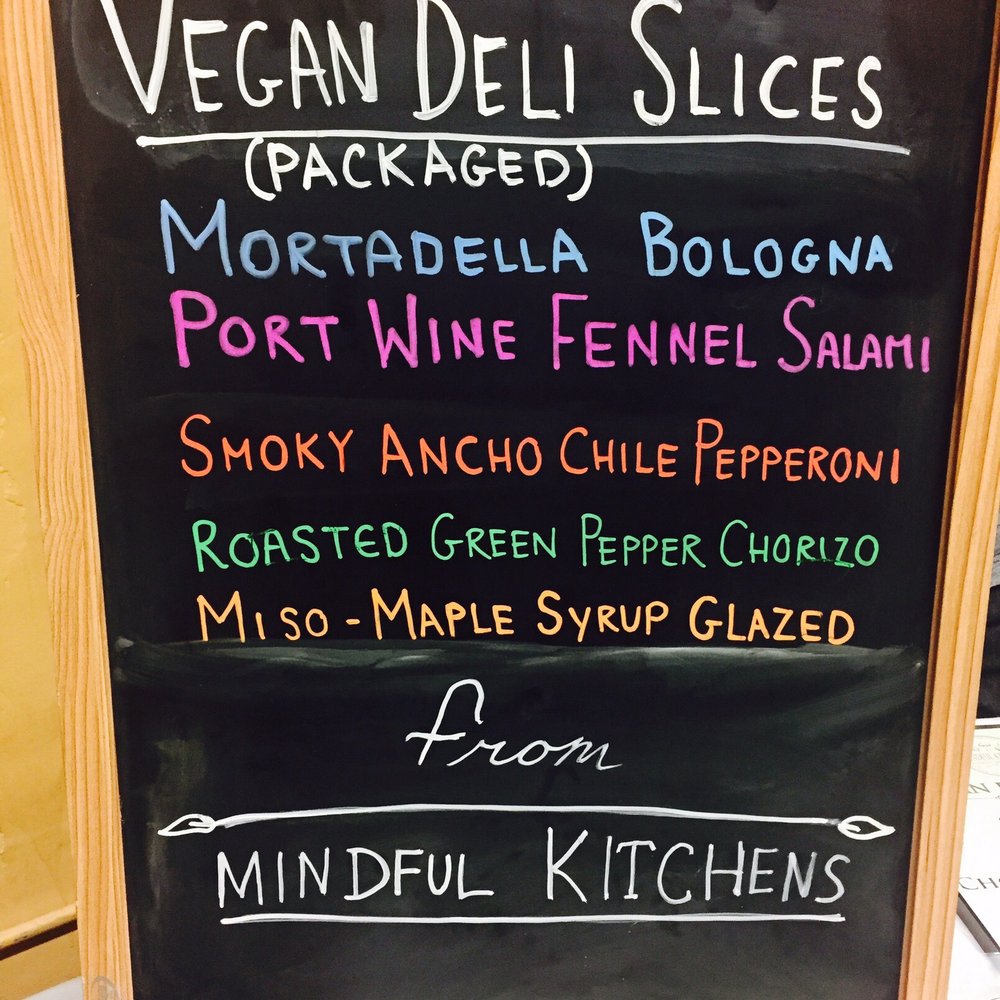 VEGAN DELI SLICES
(PACKAGED)
MORTADELLA BOLOGNA
PORT WINE FENNEL SALAMI
SMOKY ANCHO CHILE PEPPERONI
ROASTED GREEN PEPPER CHORIZO
MISO-MAPLE SYRUP GLAZED
from
MINDFUL KITCHENS